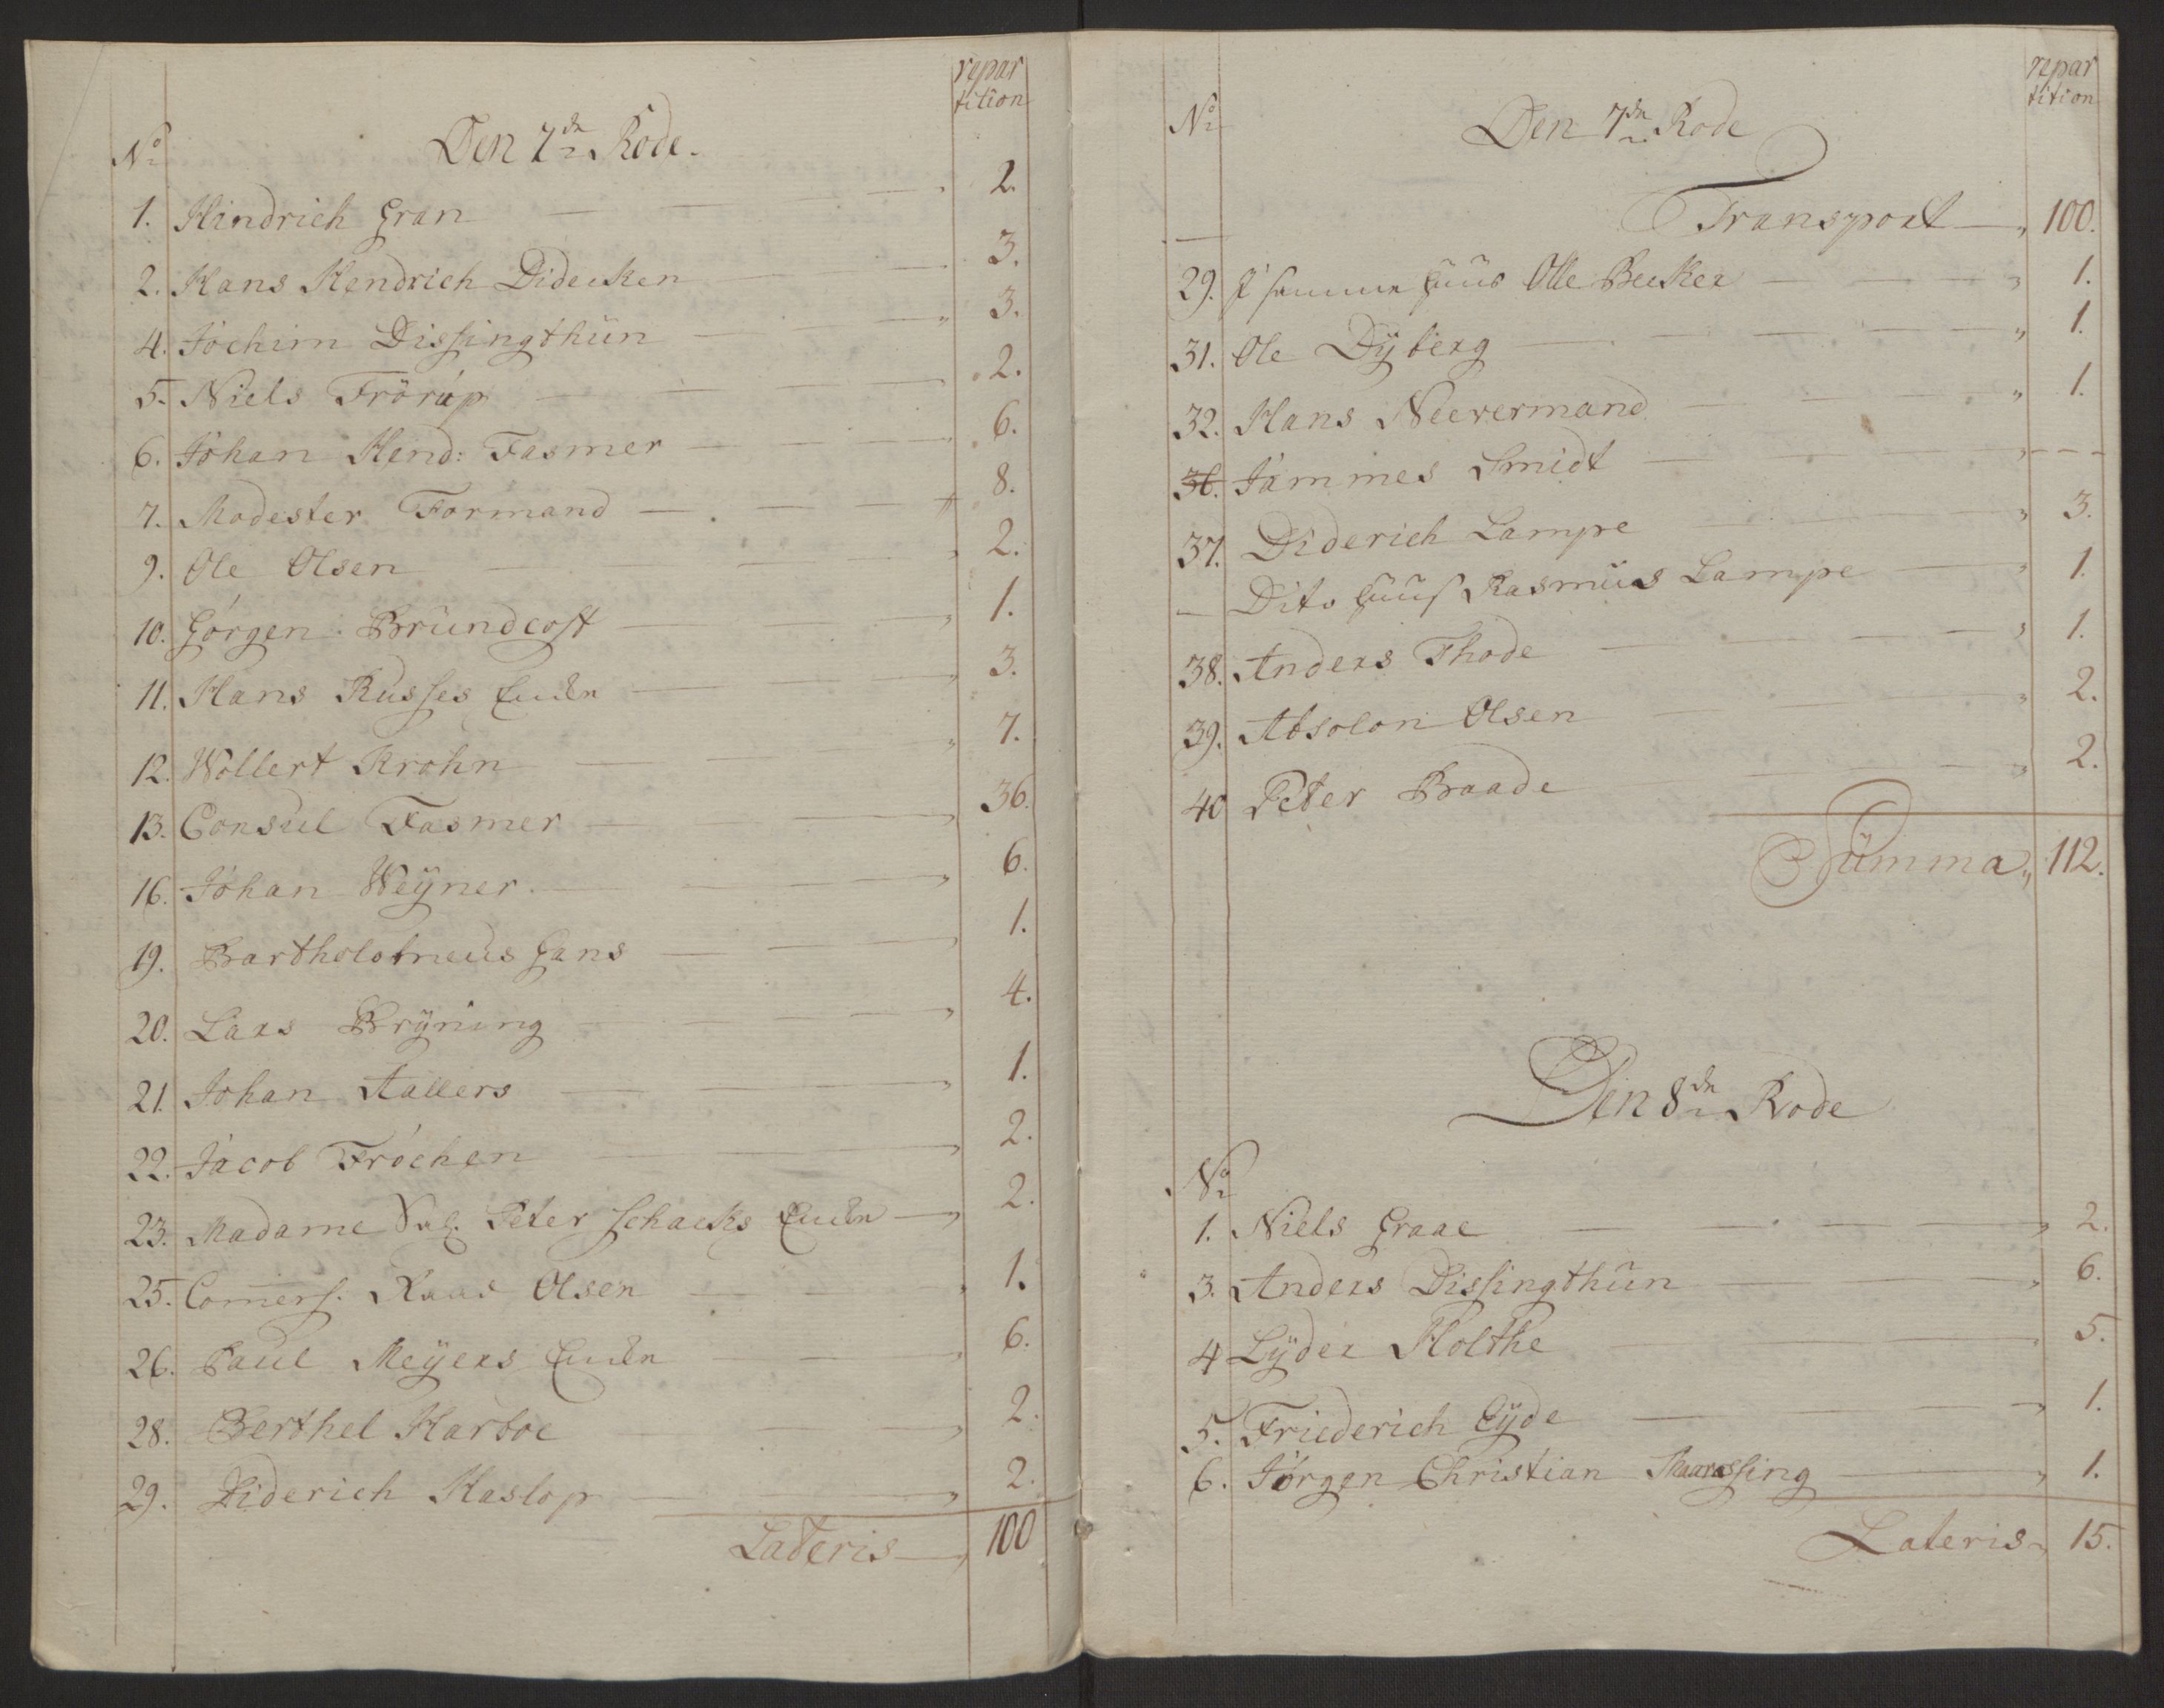 repar
tition
No Den 7de Rode.
1. Hindrich Gran 2.
2. Hans Hendrich Didecken 3.
4. Jochim Dissingthün 3.
5. Niels Frörüp 2.
6. Johan Hend: Fasmer 6.
7. Modester Formand 8.
9. Ole Olsen 2.
10. Görgen Bründcoft 1.
11. Hans Russes Encke 3.
12. Wollert Krohn 7.
13. Consul Fasmer 36.
16. Johan Weÿner 6.
19. Bartholomeus Gans 1.
20. Lars Brÿning 4.
21. Johan Aallers 1.
22. Jacob Fröchen 2.
23. Madame Sal. Peter Schacks Encke 2.
25. Comers. Raad Olsen 1.
26. Paul Meÿers Encke 6.
28. Berthel Harboe 2.
29. Diderich Haslop 2.
Lateris 100
repar
tition
No Den 7de Rode
Transport 100.
29. I samme Huus Olle Becker 1.
31. Ole Dÿberg 1.
32. Hans Neevermand 1.
36. Jammes Smidt ---
37. Diderich Lampe 3.
— Dito Huus Rasmus Lampe 1.
38. Anders Thode 1.
39. Absolon Olsen 2.
40 Peter Baade 2.
Summa 112.
Den 8de Rode
No
1. Niels Graae 2.
3. Anders Dissingthün 6.
4 Lÿder Holthe 5.
5. Friederich Eÿde 1.
6. Jörgen Christian 1.
Lateris 15.